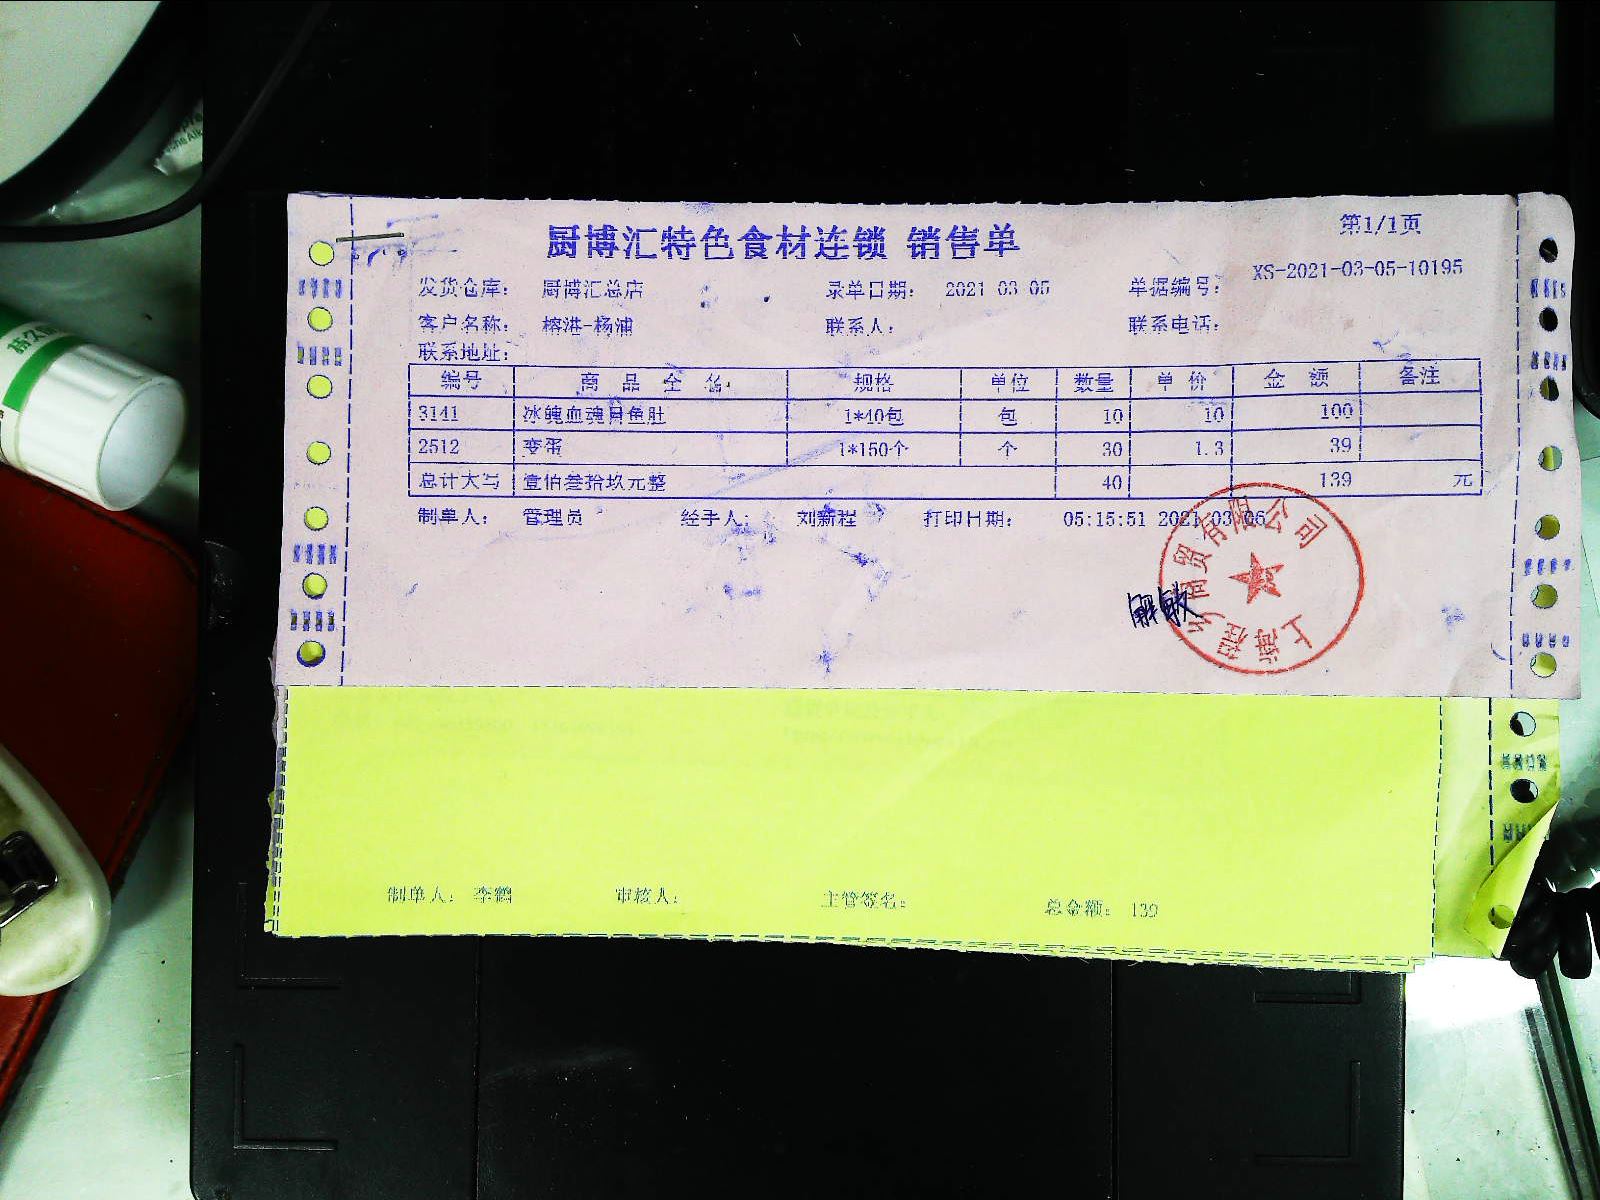 厨博汇特色食材连锁 销售单
第1/1页
发货仓库: 厨博汇总店 录单日期: 2021 03 05 单据编号: XS-2021-03-05-10195
客户名称: 榕港-杨浦 联系人: 联系电话:
联系地址:
编号 商品全名 规格 单位 数量 单价 金额 备注
3141 冰魄血魂月鱼肚 1*40包 包 10 10 100
2512 变蛋 1*150个 个 30 1.3 39
总计大写 壹佰叁拾玖元整 40 139 元
制单人: 管理员 经手人: 刘新程 打印日期: 05:15:51 2021 03 06
上海 商贸有限公司
制单人: 李鹤 审核人: 主管签名: 总金额: 139
持久